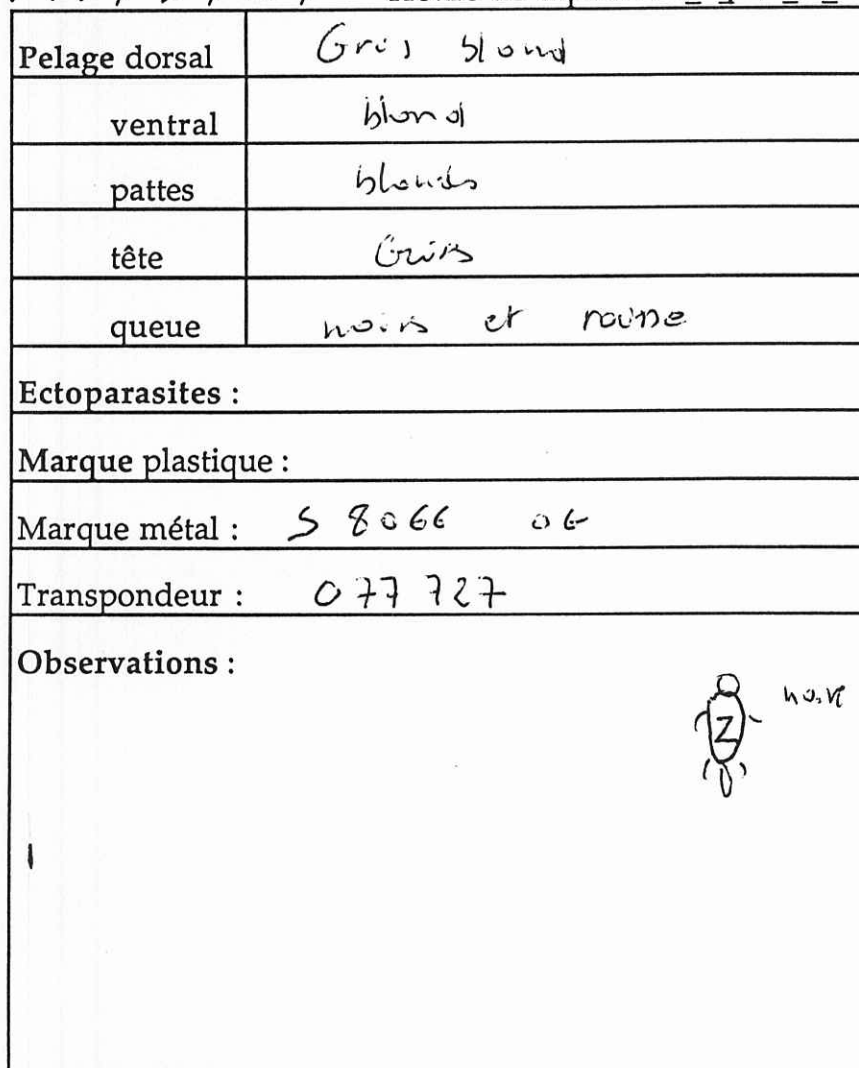 Pelage dorsal Gris blond
ventral blond
pattes blondes
tête Grise
queue noire et
Ectoparasites :
Marque plastique :
Marque métal : S 8066
Transpondeur : 077 727
Observations :
Z noir